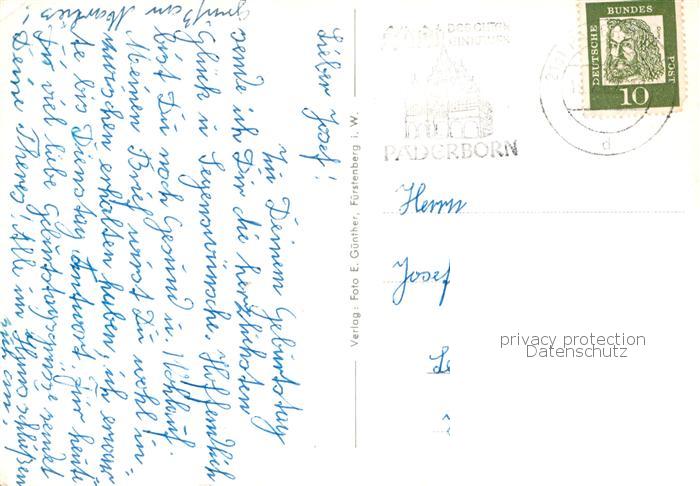 Gruß an Marlies!
Lieber Josef!
Zu Deinem Geburtstag
sende ich Dir die herzlichsten
Glück u Segenswünsche. Hoffendlich
bist Du noch Gesund u. Wohlauf.
Meinen Brief wirst Du wohl in-
zwischen erhalten haben, ich erwar-
te bis Dienstag Antwort. Für heute
Dir viel liebe Geburtstagsgrüße sendet
Deine Theres! Alle im Hause schließen
sich an!
Verlag: Foto E. Günther, Fürstenberg i. W.
PADERBORN
d
DEUTSCHE BUNDES POST
10
Herrn
Josef
privacy protection
Datenschutz